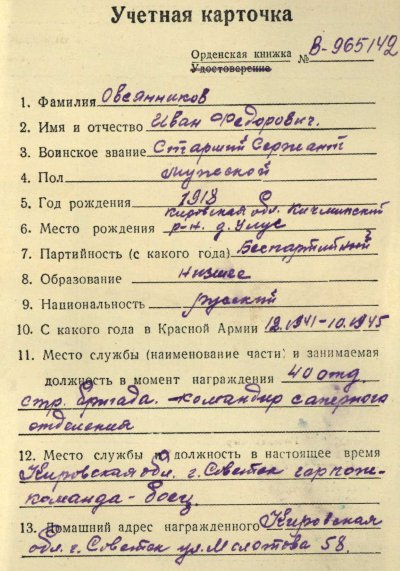 Учетная карточка
Орденская книжка № В-965142
Удостоверение
1. Фамилия Овсянников
2. Имя и отчество Иван Федорович.
3. Воинское звание Старший Сержант
4. Пол Мужской
5. Год рождения 1918
Кировская обл. Кичминский
6. Место рождения р-н. д. Улус
7. Партийность (с какого года) Беспартийный
8. Образование низшее
9. Национальность русский
10. С какого года в Красной Армии 12.1941-10.1945
11. Место службы (наименование части) и занимаемая
должность в момент награждения 40 отд.
стр. бригада. - командир саперного
отделения
12. Место службы и должность в настоящее время
Кировская обл. г. Советск гор пож-
команда - боец.
13. Домашний адрес награжденного Кировская
обл. г. Советск ул. Молотова 58.